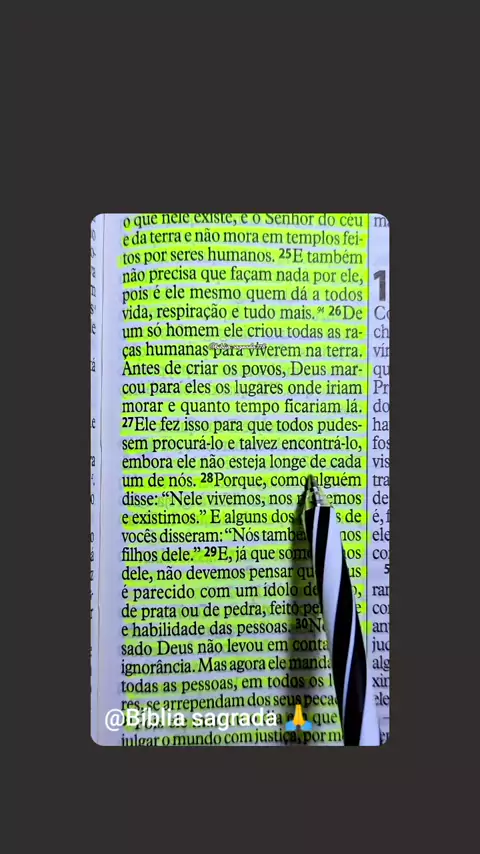 o que nele existe, é o Senhor do céu
e da terra e não mora em templos fei-
tos por seres humanos. 25E também
não precisa que façam nada por ele,
pois é ele mesmo quem dá a todos
vida, respiração e tudo mais. 26De
um só homem ele criou todas as ra-
ças humanas para viverem na terra.
Antes de criar os povos, Deus mar-
cou para eles os lugares onde iriam
morar e quanto tempo ficariam lá.
27Ele fez isso para que todos pudes-
sem procurá-lo e talvez encontrá-lo,
embora ele não esteja longe de cada
um de nós. 28Porque, como alguém
disse: “Nele vivemos, nos
e existimos.” E alguns dos de
vocês disseram: “Nós
filhos dele.” 29E, já que
dele, não devemos pensar
é parecido com um ídolo de
de prata ou de pedra, feito
e habilidade das pessoas. 30
sado Deus não levou em conta
ignorância. Mas agora ele manda
todas as pessoas, em todos os
res, se arrependam dos seus
que
julgar o mundo com justiça, por
@Biblia sagrada 🙏